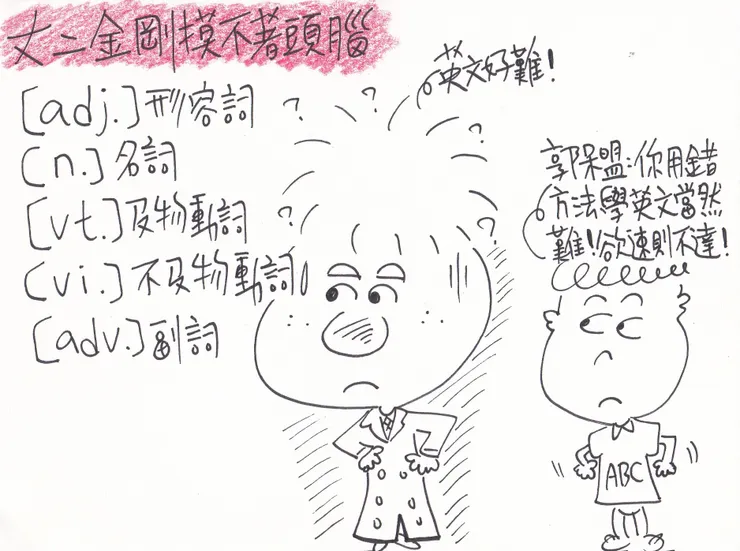 丈二金剛摸不著頭腦
[adj.]形容詞
[n.]名詞
[vt.]及物動詞
[vi.]不及物動詞
[adv.]副詞
? ? ? ? ?
英文好難!
郭保盟:你用錯
方法學英文當然
難!欲速則不達!
ABC